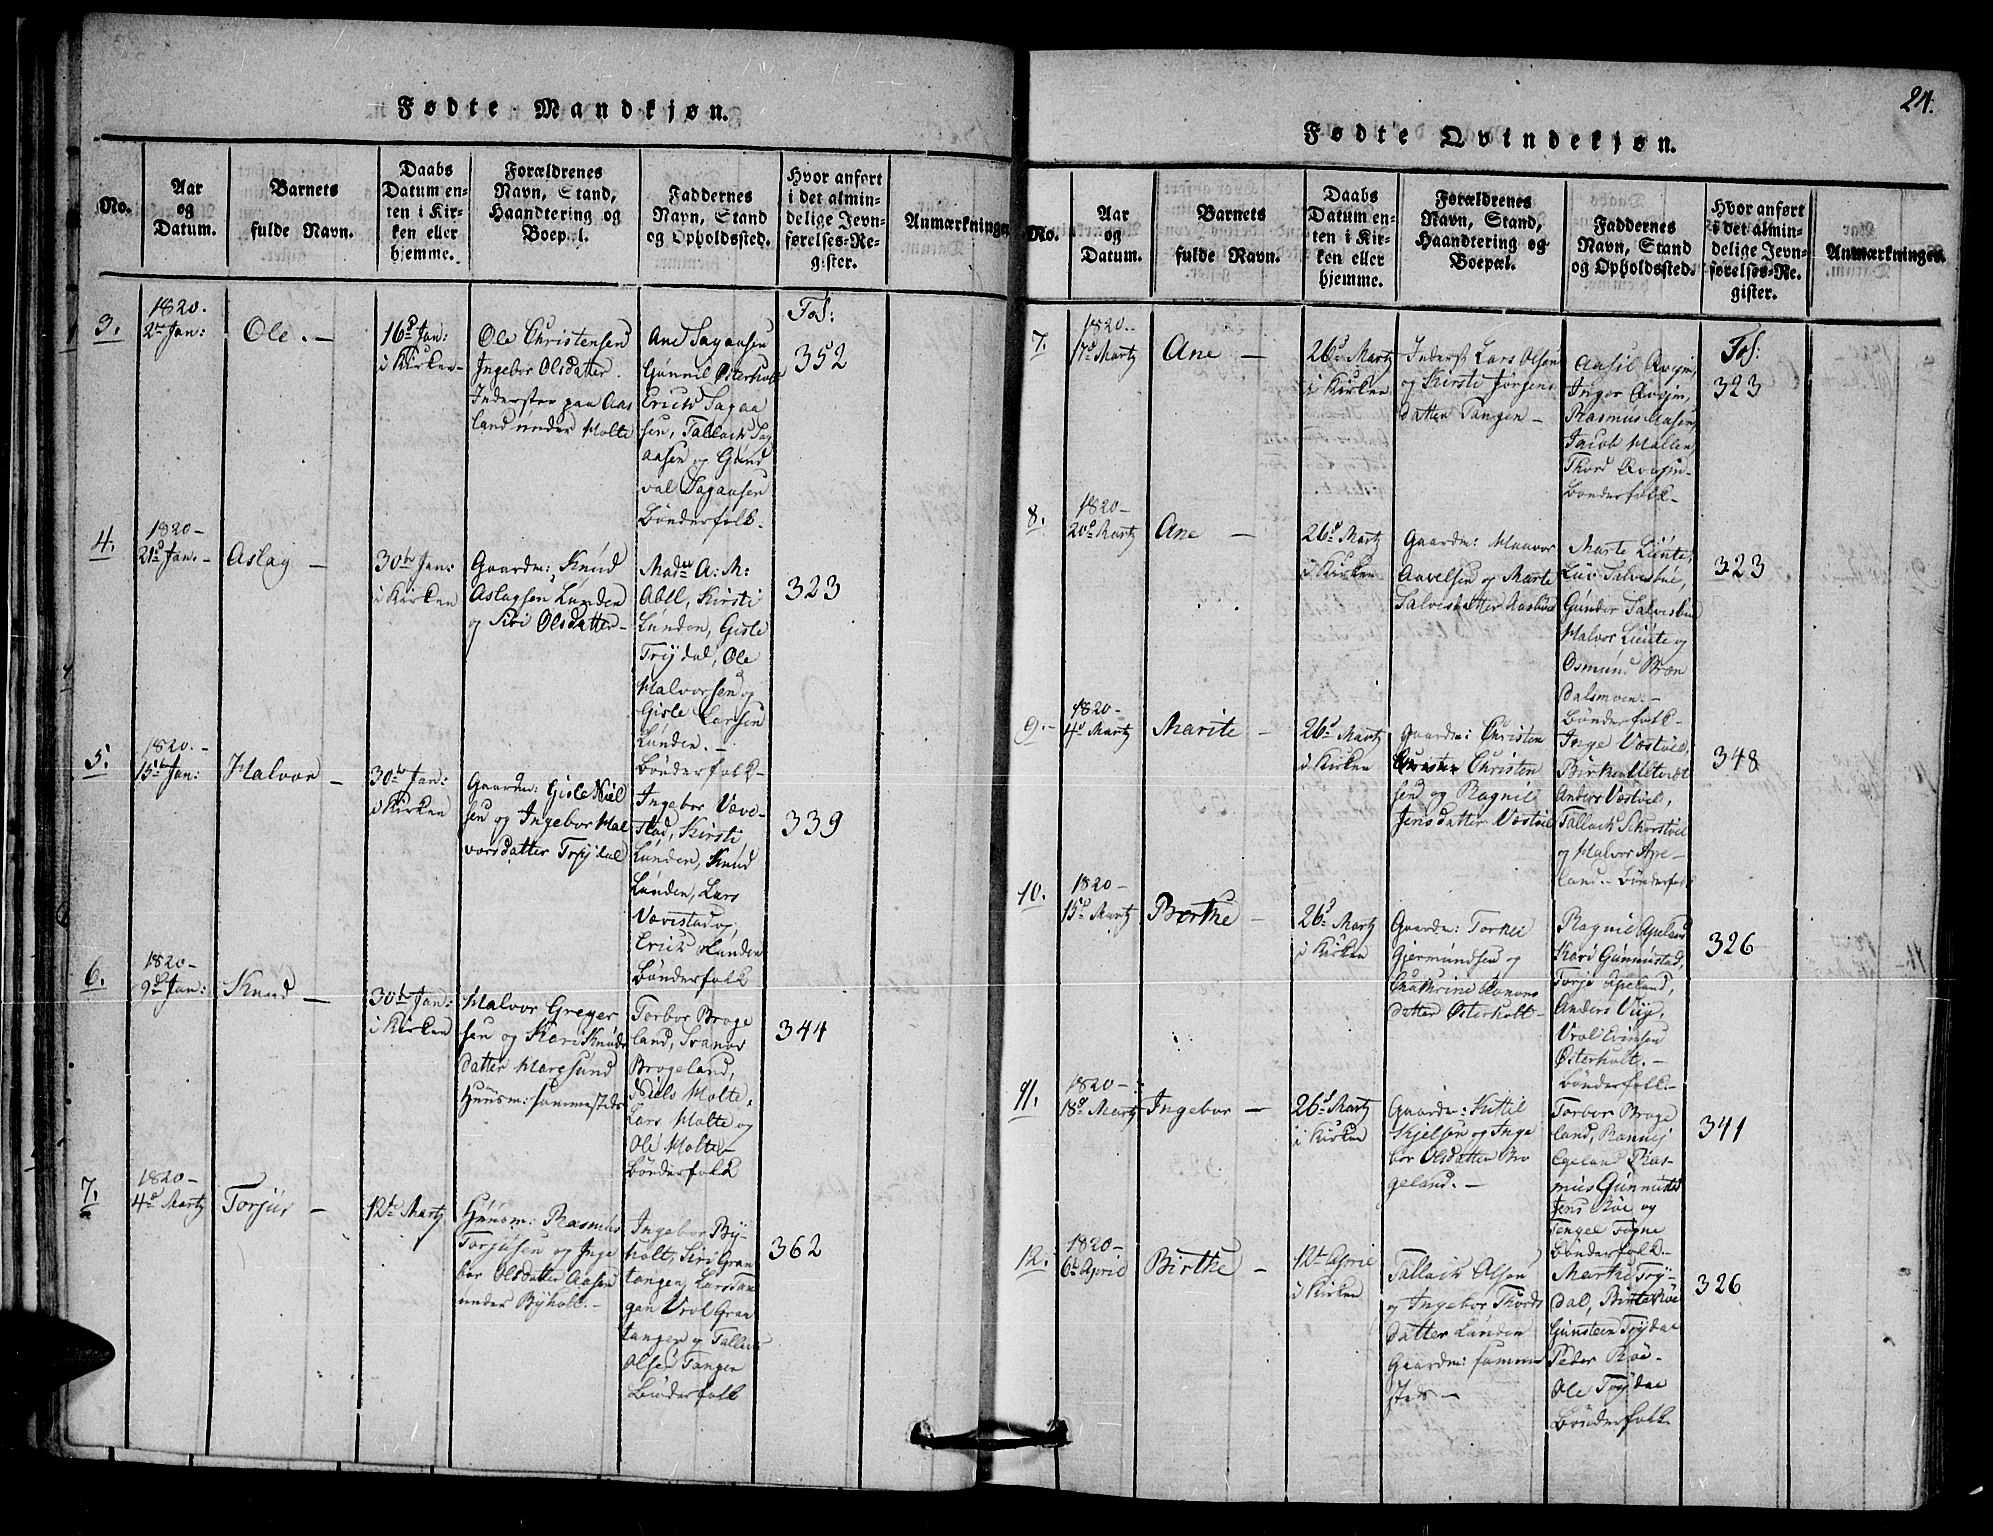 Fødte Mandkjøn.
No.
Aar
og
Datum.
Barnets
fulde Navn.
Daabs
Datum en-
ten i Kir-
ken eller
hjemme.
Forældrenes
Navn, Stand,
Haandtering og
Boepæl.
Faddernes
Navn, Stand
og Opholdssted.
Hvor anført
i det almin-
delige Jevn-
førelses-Re-
gister.
Anmærkninger
3.
1820.
2den Jan:
Ole. —
16d Jan:
i Kirken
Ole Christensen
Ingebor Olsdatter
Inderster paa Aas
land under Molte
Ane Sagaasen
Gunnil Østerholt
Erich Sagaa
sen, Tallach Sag
aasen og Gund
val Sagaasen
Bønderfolk.
Fol:
352
4.
1820 —
21d Jan. —
Aslag —
30te Jan:
i Kirken
Gaardm: Knud
Aslagsen Lunden
og Siri Olsdatter —
Madm A: M:
Abll, Kirsti
Lunden, Gisle
Trydal, Ole
Halvorsen og
Gisle Larsen
Lunden. —
Bønderfolk —
323
5.
1820. —
15de Jan:
Halvor —
30te Jan:
i Kirken
Gaardm: Gisle Niel
sen og Ingebor Hal
vorsdatter Trydal
Ingebor Væve-
stad, Kirsti
Lunden, Knud
Lunden, Lars
Vævestad og
Erich Lunden
Bønderfolk
339
6.
1820 —
9de Jan:
Knud —
30te Jan:
i Kirken
Halvor Greger
sen og Kari Knuds
datter Maresund
Huusm: sammesteds
Torbor Broge
land, Svanov
Brogeland,
Niels Molte,
Lars Molte og
Ole Molte —
Bønderfolk
344
7.
1820 —
4d Martz
Torjus —
12te Martz
Huusm: Rasmus
Torjusen og Inge
bor Olsdatter Aasen
under Byholt. —
Ingebor By-
holt, Siri Gran
tangen, Lars Tan
gen Vrol Gran
tangen og Tallach
Olsen Tangen
Bønderfolk
362
24.
Fødte Qvindekjøn.
No.
Aar
og
Datum.
Barnets
fulde Navn.
Daabs
Datum en-
ten i Kir-
ken eller
hjemme.
Forældrenes
Navn, Stand,
Haandtering og
Boepæl.
Faddernes
Navn, Stand
og Opholdssted.
Hvor anført
i det almin-
delige Jevn-
førelses-Re-
gister.
Anmærkninger.
7.
1820 —
17d Martz
Ane —
26d Martz
i Kirken
Inderst Lars Olsen
og Kirsti Jørgens
datter Tangen —
Aasil
Inger
Rasmus Aasen,
Jacob Mollen
Thord
Bønderfolk —
Fol:
323
8.
1820 —
20d Martz
Ane —
26d Martz
i Kirken
Gaardm: Haavor
Aavelsen og Marte
Salvesdatter
Marte Liinte,
Liiv Salvesbue,
Gunder Salvesbue
Halvor Liinte og
Osmund Bræn
dalsmoen. —
Bønderfolk —
323
9. —
1820 —
4d Martz
Marite —
26d Martz
i Kirken
Gaardm: Christen
Christen
sen og Ragnil
Jensdatter Væstøel
Inge Væstøel,
Birke
Anders Væstøel,
Tallach Skorstøel
og Halvor Ape-
land. Bønderfolk
348
10.
1820 —
15d Martz
Berthe —
26d Martz
i Kirken
Gaardm: Torkel
Gjermundsen og
Cathrine Aanons
datter Østerholt —
Ragnil Apeland
Kari Gunnestad,
Torje Apeland,
Anders Viig,
Vrol Evensen
Østerholt. —
Bønderfolk. —
326
11.
1820 —
18d Martz
Ingebor —
26d Martz
i Kirken
Gaardm: Kittil
Kjelsen og Inge
bor Olsdatter Bro
geland. —
Torbor Broge
land, Rannej
Egeland Ras-
mus Gunnestad
Jens Røe og
Tengel Togne
Bønderfolk —
341
12.
1820 —
6te Aprie
Birthe —
12te Aprie
i Kirken
Tallach Olsen
og Ingebor Thords
datter Lunden
Gaardm: samme
steds —
Marthe Try-
dal, Birthe Røe
Gunsteen Trydal
Peder Røe —
Ole Trydal
Bønderfolk
326